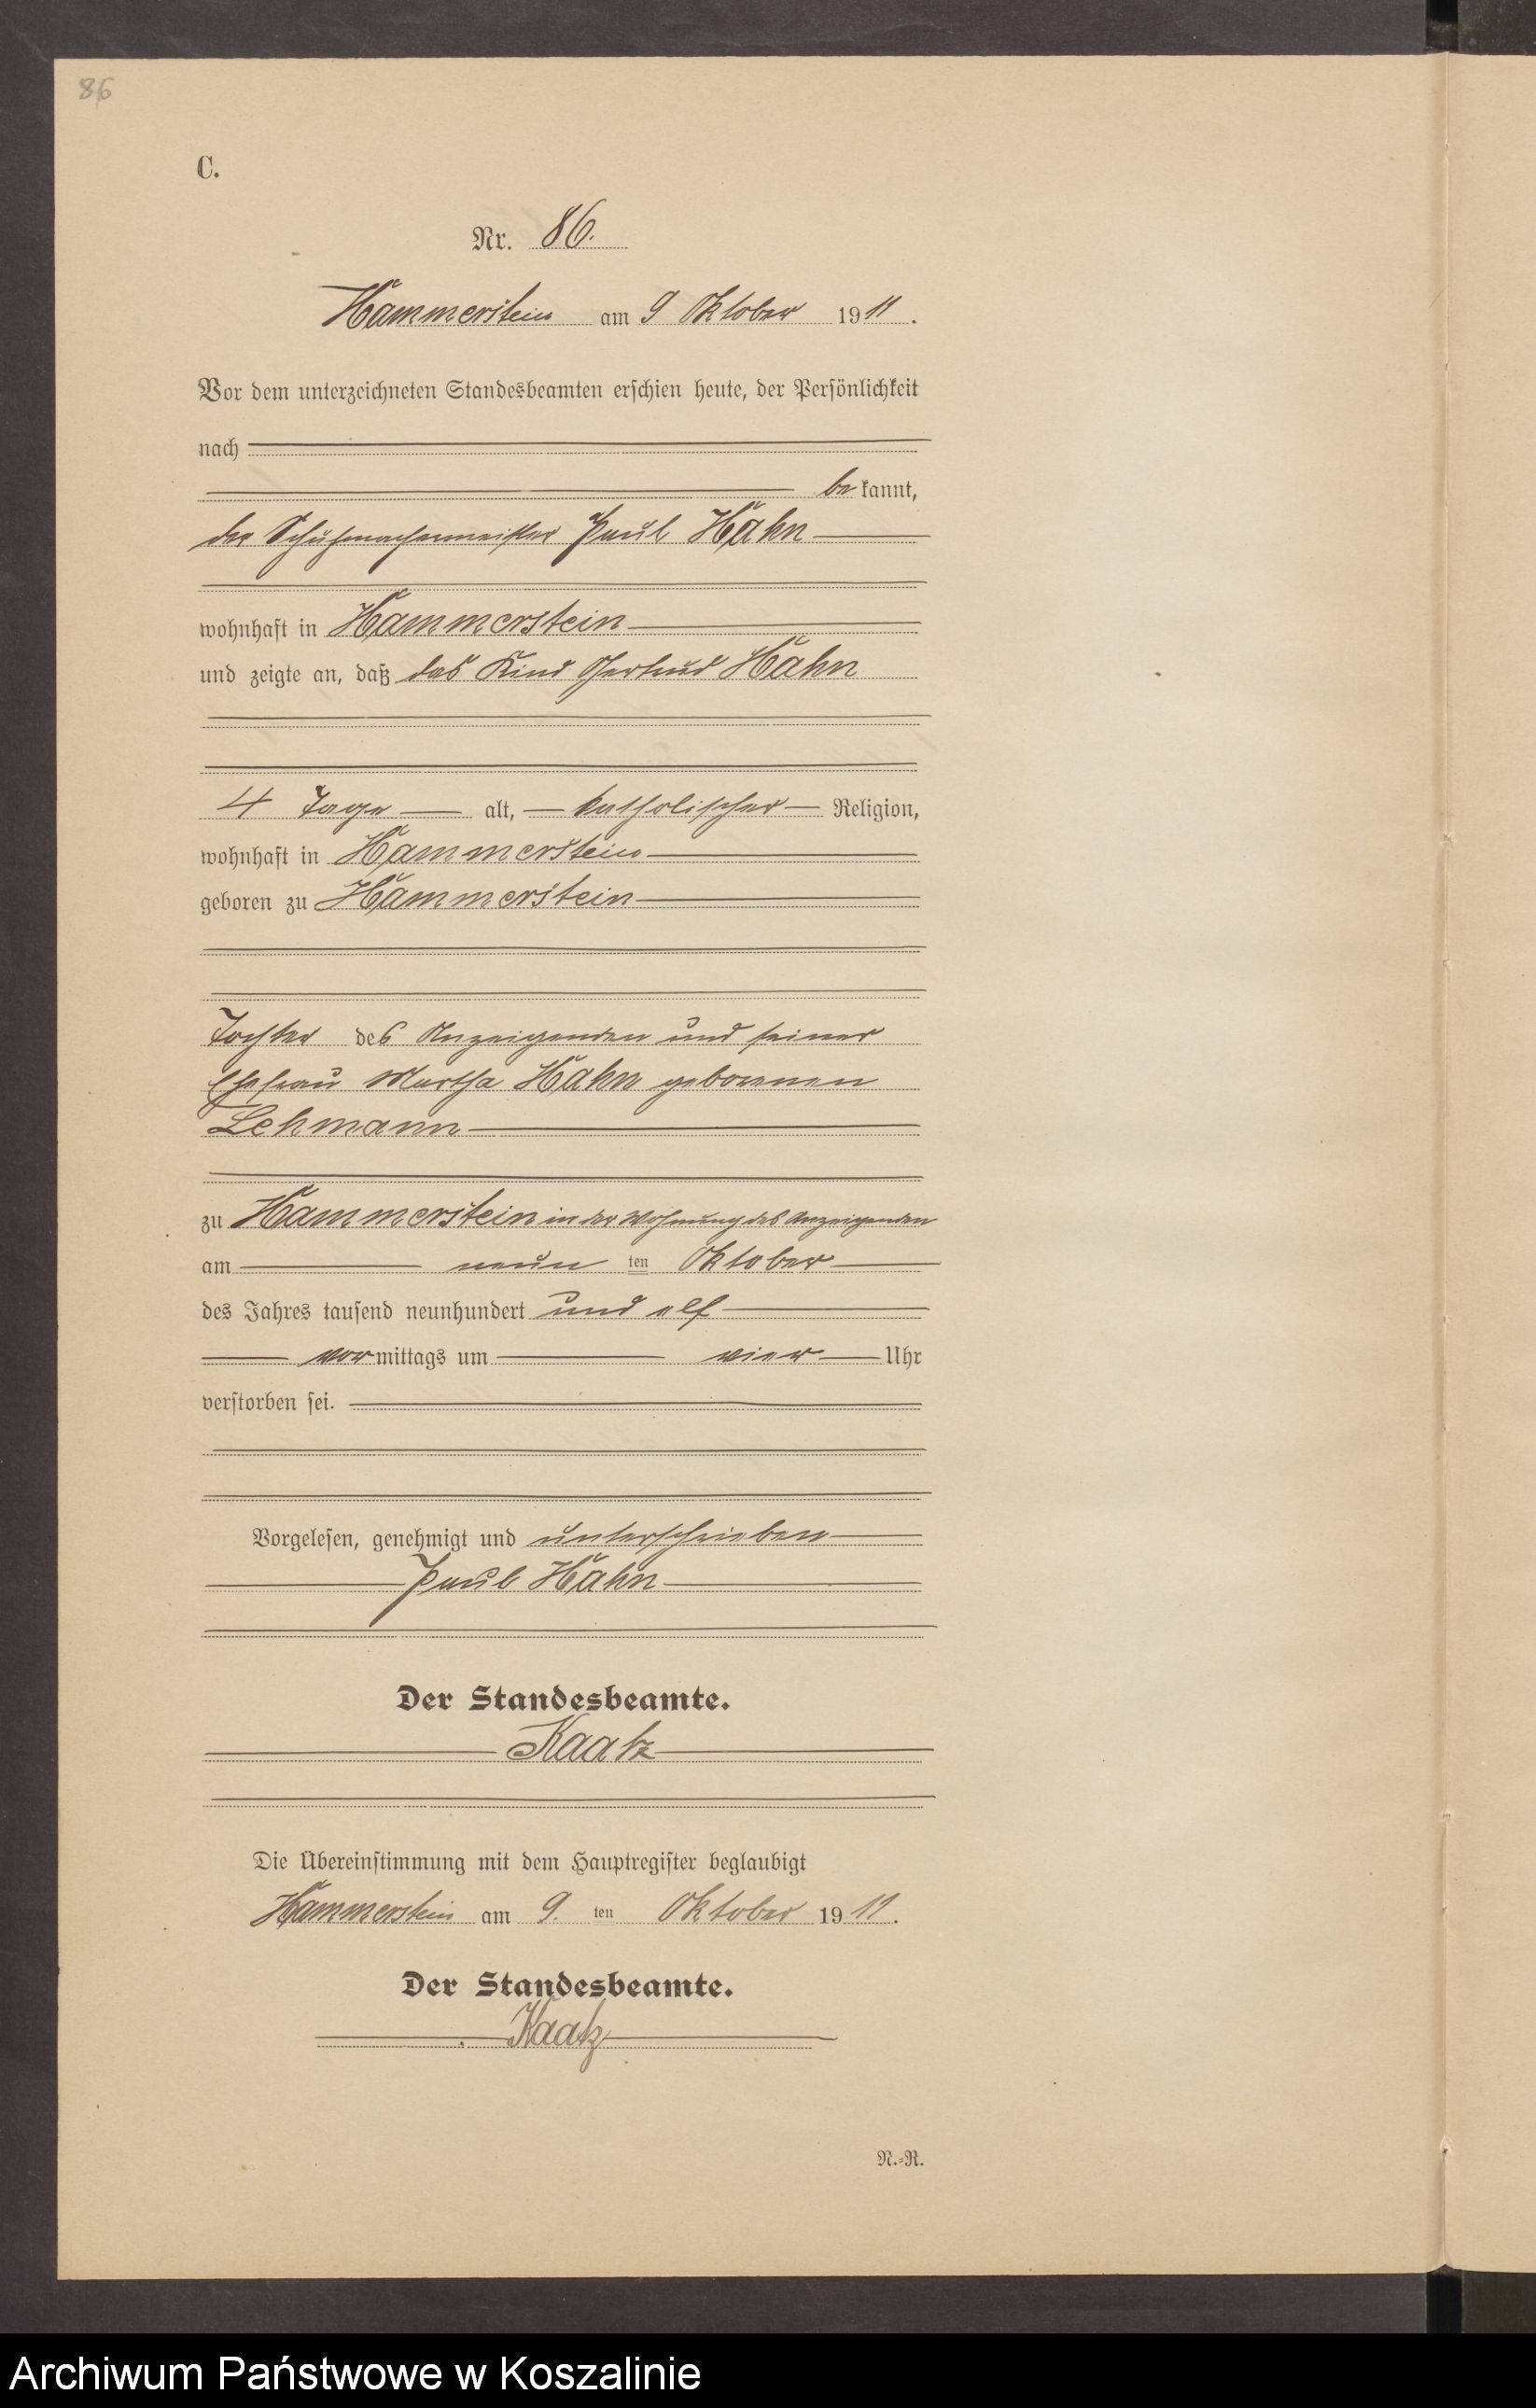 86
C.
Nr. 86.
Hammerstein am 9 Oktober 1911.
Vor dem unterzeichneten Standesbeamten erschien heute, der Persönlichkeit
nach
be kannt,
der Schuhmachermeister Paul Hahn
wohnhaft in Hammerstein
und zeigte an, daß das Kind Gertrud Hahn
4 Tage alt, katholischer Religion,
wohnhaft in Hammerstein
geboren zu Hammerstein
Tochter des Anzeigenden und seiner
Ehefrau Martha Hahn geborenen
Lehmann
zu Hammerstein in der Wohnung des Anzeigenden
am neun ten Oktober
des Jahres tausend neunhundert und elf
vormittags um vier Uhr
verstorben sei.
Vorgelesen, genehmigt und unterschrieben
Paul Hahn
Der Standesbeamte.
Kaatz
Die Übereinstimmung mit dem Hauptregister beglaubigt
Hammerstein am 9. ten Oktober 1911.
Der Standesbeamte.
Kaatz
N.=R.
Archiwum Państwowe w Koszalinie